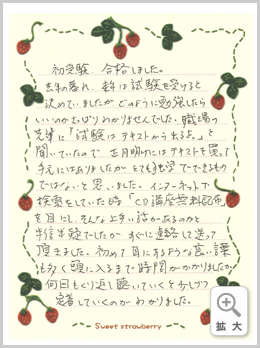 初受験、合格しました。
去年の暮れ、来年は試験を受けると
決めていましたが、どのように勉強したら
いいのかさっぱりわかりませんでした。職場の
先輩に「試験はテキストから出るよ。」と
聞いていたので、正月明けにはテキストを買って
手元にはありましたがとても独学でできるもの
ではないと思いました。インターネットで
検索をしていた時「CD講座無料配布」
を目にし、そんな上手い話があるのかと
半信半疑でしたが すぐに連絡して送って
頂きました。初めて目にするような高い言葉
も多く頭に入るまで時間がかかりましたが、
何回もくり返し聴いていくと少しづつ
定着していくのがわかりました。
Sweet strawberry
拡大